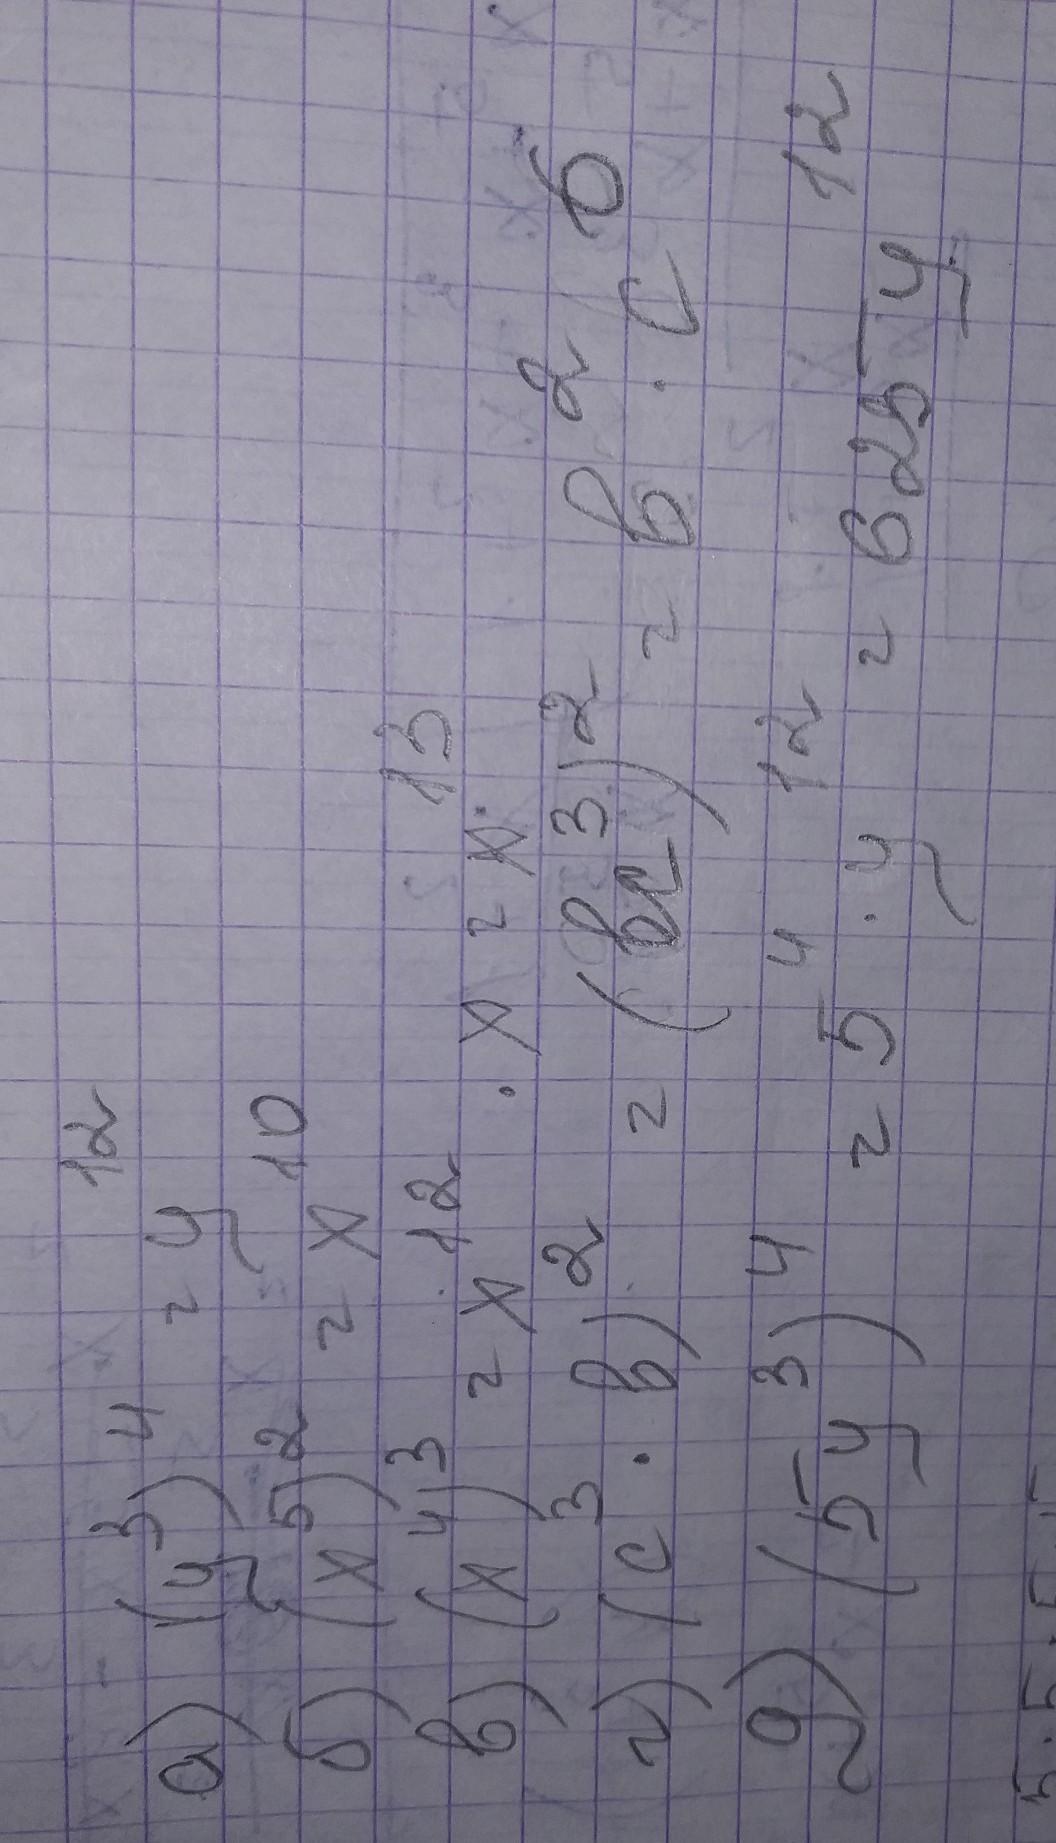 а) (y³)⁴ = y¹²
б) (x⁵)² = x¹⁰
в) (x⁴)³ = x¹² · x = x¹³
г) (c³ · b)² = (bc³)² = b² · c⁶
д) (5y³)⁴ = 5⁴ · y¹² = 625y¹²
5·5·5·5